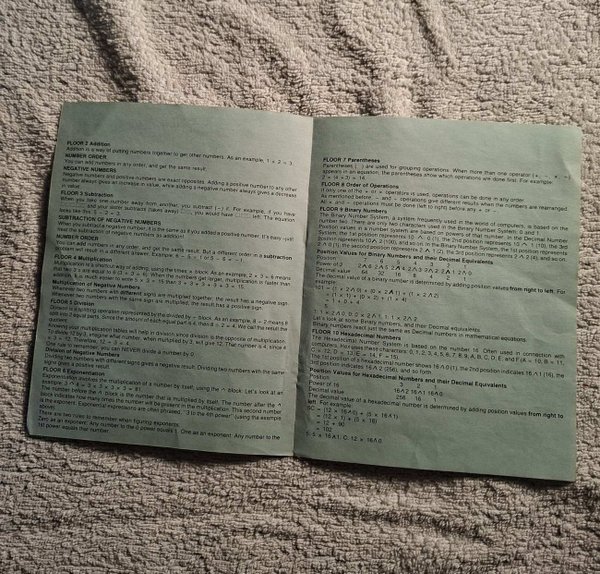 FLOOR 2 Addition
Addition is a way of putting numbers together to get other numbers. As an example, 1 + 2 = 3.
NUMBER ORDER
You can add numbers in any order, and get the same result.
NEGATIVE NUMBERS
Negative numbers and positive numbers are exact opposites. Adding a positive number to any other
number always gives an increase in value, while adding a negative number always gives a decrease
in value.
FLOOR 3 Subtraction
When you take one number away from another, you subtract (-) it. For example, if you have
and your sister subtracts (takes away) you would have left. The equation
looks like this: 5 - 2 = 3.
SUBTRACTION OF NEGATIVE NUMBERS
When you subtract a negative number, it is the same as if you added a positive number. It's easy - just
read the subtraction of negative numbers as addition!
NUMBER ORDER
You can add numbers in any order, and get the same result. But a different order in a subtraction
will result in a different answer. Example: 6 - 5 = 1 or 5 - 6 = -1.
FLOOR 4 Multiplication
Multiplication is a shortcut way of adding, using the times × block. As an example, 2 × 3 = 6 means
that two 3's are equal to 6 (3 + 3 = 6). When the numbers get larger, multiplication is faster than
adding. It is much easier to write 5 × 3 = 15 than 3 + 3 + 3 + 3 + 3 =
Multiplication of Negative Numbers
Whenever two numbers with different signs are multiplied together, the result has a negative sign.
Whenever two numbers with the same sign are multiplied, the result has a positive sign.
FLOOR 5 Division
Division is a splitting operation represented by the divided by ÷ block. As an example, 8 ÷ 2 means 8
split into 2 equal parts. Since the amount of each equal part is 4, then 8 ÷ 2 = 4. We call the result the
quotient.
Knowing your multiplication tables will help in division since division is the opposite of multiplication.
To divide 12 by 3, imagine what number, when multiplied by 3, will give 12. That number is 4, since 4
× 3 = 12. Therefore, 12 ÷ 3 = 4.
One rule to remember, you can NEVER divide a number by 0.
Division of Negative Numbers
Dividing two numbers with different signs gives a negative result. Dividing two numbers with the same
signs gives a positive result.
FLOOR 6 Exponentiation
Exponentiation involves the multiplication of a number by itself, using the ∧ block. Let's look at an
example: 3 ∧ 4 = 3 × 3 × 3 × 3 = 81
The number before the ∧ block is the number that is multiplied by itself. The number after the ∧
block indicates how many times the number will be present in the multiplication. This second number
is the exponent. Exponential expressions are often phrased, "3 to the 4th power" (using the example
above).
There are two rules to remember when figuring exponents:
Zero as an Exponent: Any number to the 0 power equals 1. One as an exponent: Any number to the
1st power equals that number.
FLOOR 7 Parentheses
Parentheses (...) are used for grouping operations. When more than one operator
appears in an equation, the parentheses show which operations are done first. For example:
FLOOR 8 Order of Operations
If only one of the + or × operators is used, operations can be done in any order.
As mentioned before, - and ÷ operations will give different results when the numbers are rearranged.
All × and ÷ operations must be done left to right before any + or -.
FLOOR 9 Binary Numbers
The Binary Number System, a system frequently used in the world of computers, is based on the
number two. There are two characters used in the Binary Number System, 0 and 1.
Position values in a number system are based on powers of that number. In the Decimal Number
System, the 1st position represents 10 ∧ 0 (1), the 2nd position represents 10 ∧ 1 (10), the 3rd
position represents 10 ∧ 2 (100), and so on. In the Binary Number System, the 1st position represents
2 ∧ 0 (1), the second position represents 2 ∧ 1 (2), the third position represents 2 ∧ 2 (4), and so on.
Position Values for Binary Numbers and their Decimal Equivalents.
Position 7 6 5 4 3 2 1
Power of 2 2∧6 2∧5 2∧4 2∧3 2∧2 2∧1 2∧0
Decimal value 64 32 16 8 4 2 1
The decimal value of a binary number is determined by adding position values from right to left. For
example:
101 = (1 × 2∧0) + (0 × 2∧1) + (1 × 2∧2)
= (1 × 1) + (0 × 2) + (1 × 4)
= 1 + 0 + 4
1: 1 × 2∧0, 0: 2 × 2∧1, 1: 1 × 2∧2
Let's look at some Binary numbers, and their Decimal equivalents.
Binary numbers react just the same as Decimal numbers in mathematical equations.
FLOOR 10 Hexadecimal Numbers
The Hexadecimal Number System is based on the number 16. Often used in connection with
computers, Hex uses these characters: 0, 1, 2, 3, 4, 5, 6, 7, 8, 9, A, B, C, D, E, and F (A = 10, B = 11,
C = 12, D = 13, E = 14, F = 15).
The 1st position in a Hexadecimal number shows 16∧0 (1), the 2nd position indicates 16∧1 (16), the
3rd position indicates 16∧2 (256), and so forth.
Position Values for Hexadecimal Numbers and their Decimal Equivalents
Position 3 2 1
Power of 16 16∧2 16∧1 16∧0
Decimal value 256 16 1
The decimal value of a hexadecimal number is determined by adding position values from right to
left. For example:
5C = (12 × 16∧0) + (5 × 16∧1)
= (12 × 1) + (5 × 16)
= 12 + 90
= 102
5: 5 × 16∧1, C: 12 × 16∧0